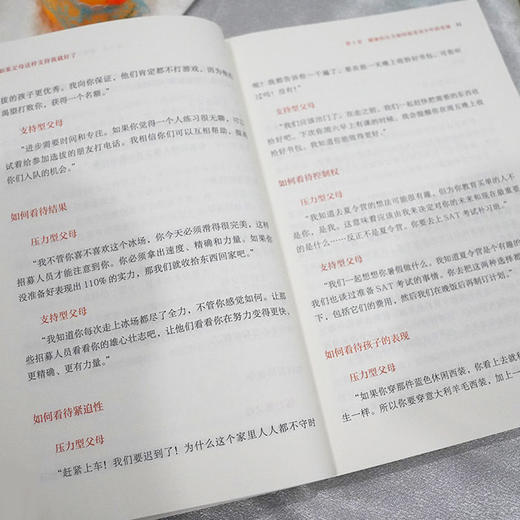 如果父母这样支持我就好了
拔的孩子更优秀。我向你保证，他们肯定都不打游戏，因为他们
渴望打败你，获得一个名额。”
支持型父母
“进步需要时间和专注。如果你觉得一个人练习很无聊，可以
试着给参加选拔的朋友打电话。我相信你们可以互相帮助，提高
你们入队的机会。”
如何看待结果
压力型父母
“我不管你喜不喜欢这个冰场，你今天必须滑得很完美，这样
招募人员才能注意到你。你必须拿出速度、精确和力量。如果你
没准备好表现出 110% 的实力，那我们就收拾东西回家吧。”
支持型父母
“我知道你每次走上冰场都尽了全力，不管你感觉如何。让那
些招募人员看看你的雄心壮志吧，让他们看看你在努力变得更快、
更精确、更有力量。”
如何看待紧迫性
压力型父母
“赶紧上车！我们要迟到了！为什么这个家里人人都不守时
呢？我都告诉你一千遍了，要在前一天晚上收拾好书包。
过吗？没有！”
支持型父母
“我们应该出门了。在走之前，我们一起赶快把需要的东西收
拾好吧。下次你周六早上有课的时候，我会提醒你在周五晚上收
拾好书包。我知道你能做得更好。”
如何看待控制权
压力型父母
“我知道去夏令营的想法可能很有趣，但为你教育买单的人不
是你，是我，这意味着应该由我来决定对你的未来和现在最重要
的是什么……反正不是夏令营。你要去上 SAT 考试补习班。”
支持型父母
“我们一起想想你暑假做什么。我知道夏令营是个有趣的
我们也谈过准备 SAT 考试的事情。你去把这两种选择都
下，包括它们的费用，然后我们在晚饭后再制订计划。”
如何看待孩子的表现
压力型父母
“如果你穿那件蓝色休闲西装，你看上去就
生一样。所以你要穿意大利羊毛西装，加上一